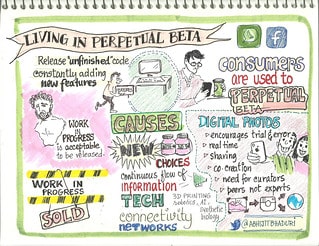 LIVING IN PERPETUAL BETA
Release 'unfinished' code
constantly adding
new features
CONSUMERS
are used to
PERPETUAL
BETA
WORK
IN
PROGRESS
is acceptable
to be released.
WORK IN
PROGRESS
SOLD
CAUSES
NEW
CHOICES
Continuous flow of
information
TECH
connectivity
NETWORKS
3D PRINTING
ROBOTICS, AI
synthetic
biology
DIGITAL PHOTOS
encourages trial & error
real time
sharing
co creation
need for curators
peers not experts
@ABHIJITBHADURI